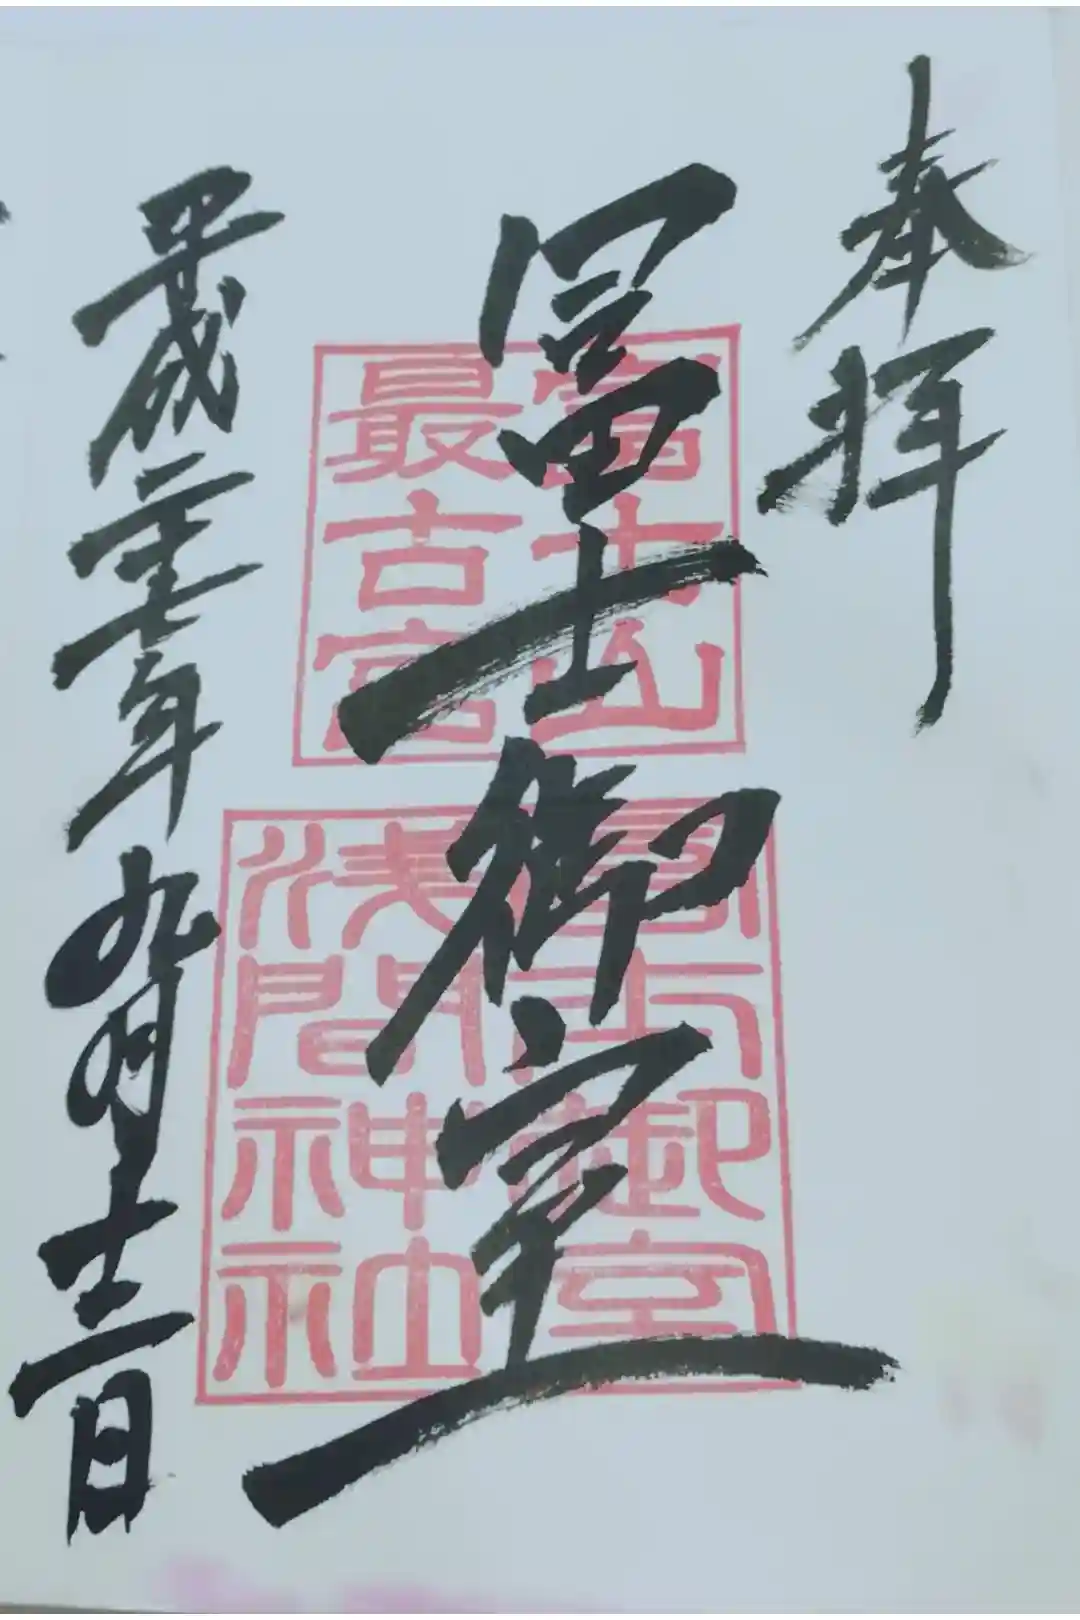 奉拝
冨士御室
富士山
最古宮
富士御室
浅間神社
平成二十七年九月十二日